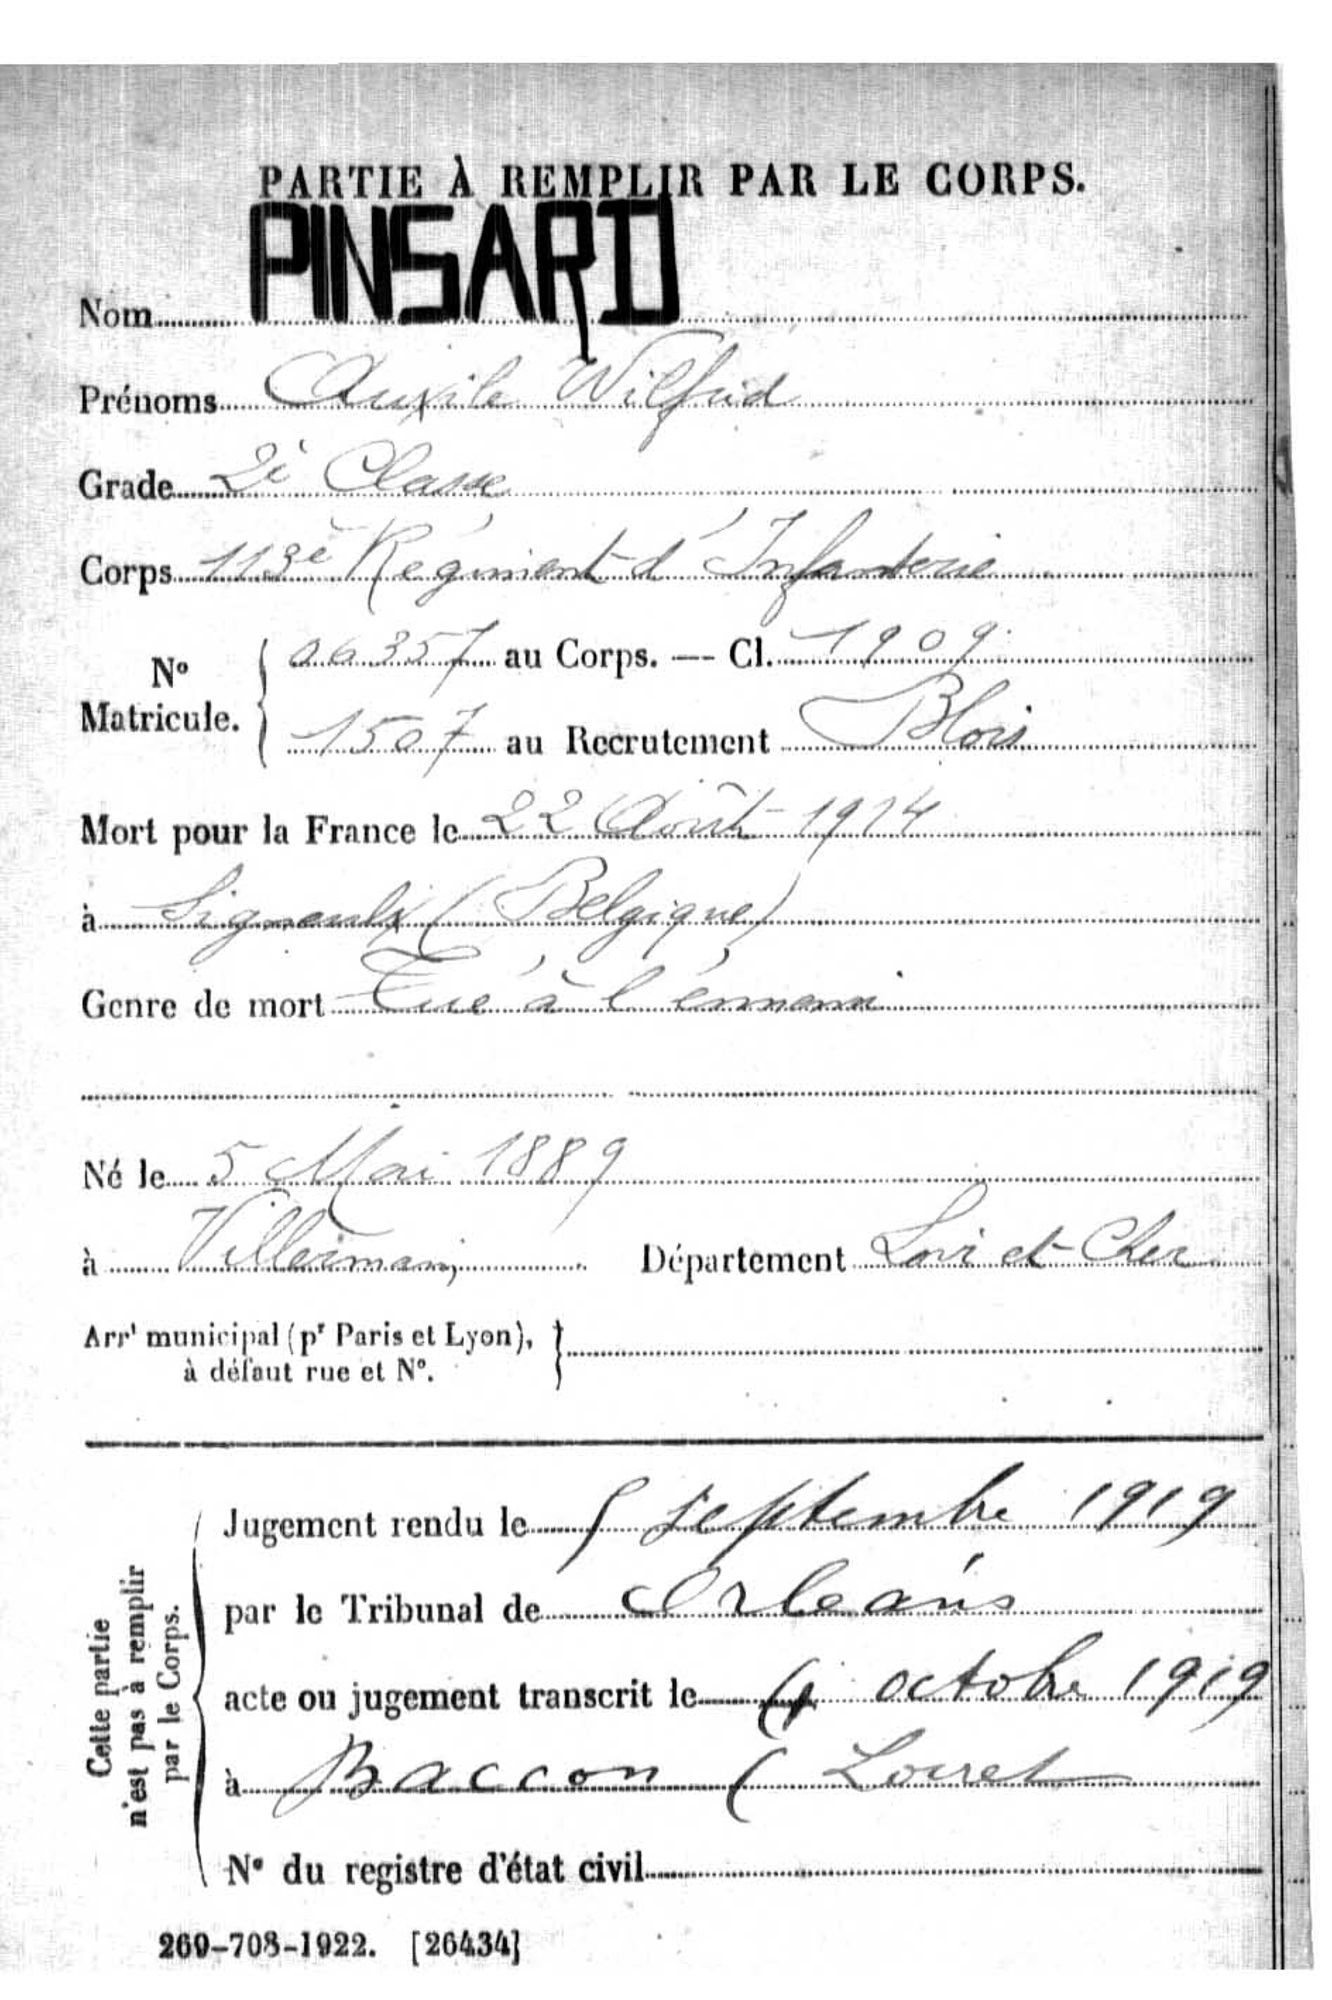 PARTIE À REMPLIR PAR LE CORPS.
Nom PINSARD
Prénoms Auxile Wilfrid
Grade 2è Classe
Corps 113è Régiment d'Infanterie
N° Matricule. 06357 au Corps. — Cl. 1909
1507 au Recrutement Blois
Mort pour la France le 22 Août 1914
à Signeulx (Belgique)
Genre de mort Tué à l'énnemi
Né le 5 Mai 1889
à Villermain, Département Loir et Cher
Arrt municipal (pr Paris et Lyon),
à défaut rue et N°.
Cette partie
n'est pas à remplir
par le Corps.
Jugement rendu le 5 septembre 1919
par le Tribunal de Orléans
acte ou jugement transcrit le octobre 1919
à Baccon (Loiret
N° du registre d'état civil
269-708-1922. [26434]